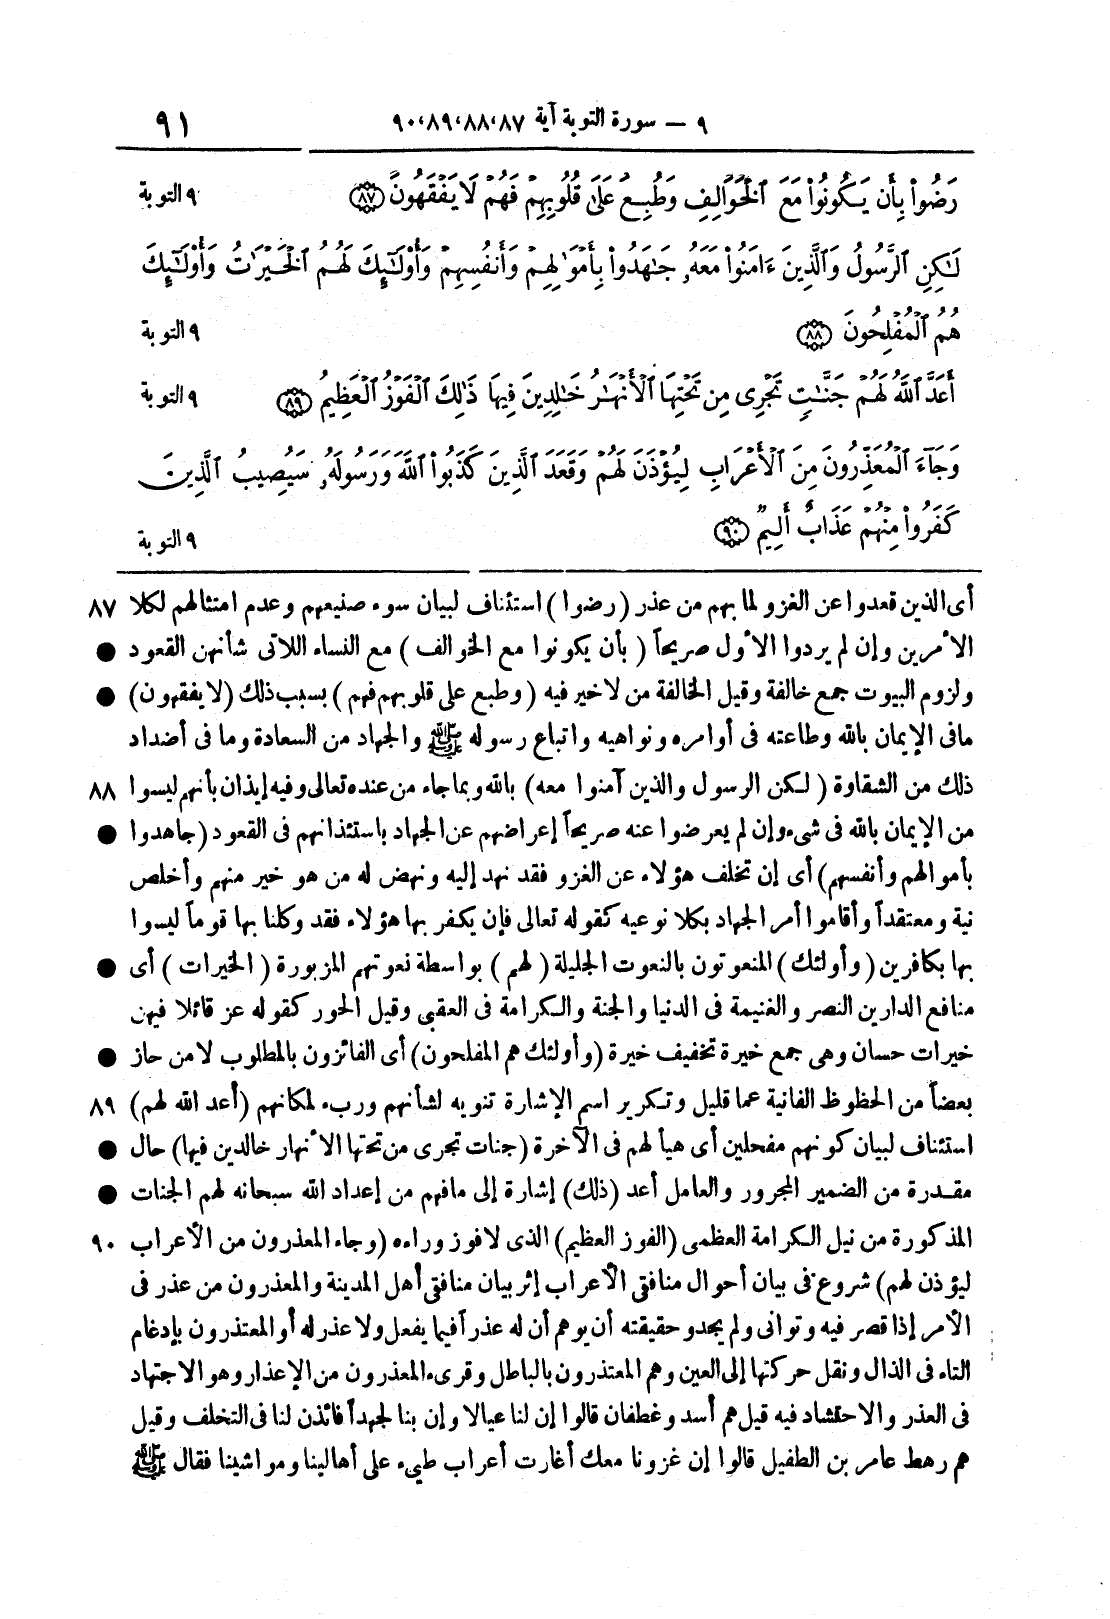 ٩ — سورة التوبة آية ٨٧،٨٨،٨٩،٩٠ ٩١
رَضُوا۟ بِأَن يَكُونُوا۟ مَعَ ٱلْخَوَالِفِ وَطُبِعَ عَلَىٰ قُلُوبِهِمْ فَهُمْ لَا يَفْقَهُونَ ٨٧ ٩ التوبة
لَٰكِنِ ٱلرَّسُولُ وَٱلَّذِينَ ءَامَنُوا۟ مَعَهُۥ جَٰهَدُوا۟ بِأَمْوَٰلِهِمْ وَأَنفُسِهِمْ وَأُو۟لَٰٓئِكَ لَهُمُ ٱلْخَيْرَٰتُ وَأُو۟لَٰٓئِكَ
هُمُ ٱلْمُفْلِحُونَ ٨٨ ٩ التوبة
أَعَدَّ ٱللَّهُ لَهُمْ جَنَّٰتٍ تَجْرِى مِن تَحْتِهَا ٱلْأَنْهَٰرُ خَٰلِدِينَ فِيهَا ذَٰلِكَ ٱلْفَوْزُ ٱلْعَظِيمُ ٨٩ ٩ التوبة
وَجَآءَ ٱلْمُعَذِّرُونَ مِنَ ٱلْأَعْرَابِ لِيُؤْذَنَ لَهُمْ وَقَعَدَ ٱلَّذِينَ كَذَبُوا۟ ٱللَّهَ وَرَسُولَهُۥ سَيُصِيبُ ٱلَّذِينَ
كَفَرُوا۟ مِنْهُمْ عَذَابٌ أَلِيمٌ ٩٠ ٩ التوبة
أى الذين قعدوا عن الغزو لما بهم من عذر (رضوا) استئناف لبيان سوء صنيعهم وعدم امتثالهم لكلا ٨٧
الأمرين وإن لم يردوا الأول صريحاً (بأن يكونوا مع الخوالف) مع النساء اللاتى شأنهن القعود ●
ولزوم البيوت جمع خالفة وقيل الخالفة من لاخير فيه (وطبع على قلوبهم فهم) بسبب ذلك (لا يفقهون) ●
مافى الإيمان بالله وطاعته فى أوامره ونواهيه واتباع رسوله ﷺ والجهاد من السعادة وما فى أضداد
ذلك من الشقاوة (لكن الرسول والذين آمنوا معه) بالله وبما جاء من عنده تعالى وفيه إيذان بأنهم ليسوا ٨٨
من الإيمان بالله فى شىء وإن لم يعرضوا عنه صريحاً إعراضهم عن الجهاد باستئذانهم فى القعود (جاهدوا ●
بأموالهم وأنفسهم) أى إن تخلف هؤلاء عن الغزو فقد نهد إليه ونهض له من هو خير منهم وأخلص
نية ومعتقداً وأقاموا أمر الجهاد بكلا نوعيه كقوله تعالى فإن يكفر بها هؤلاء فقد وكلنا بها قوماً ليسوا
بها بكافرين (وأولئك) المنعوتون بالنعوت الجليلة (لهم) بواسطة نعوتهم المزبورة (الخيرات) أى ●
منافع الدارين النصر والغنيمة فى الدنيا والجنة والكرامة فى العقبى وقيل الحور كقوله عز قائلا فيهن
خيرات حسان وهى جمع خيرة تخفيف خيرة (وأولئك هم المفلحون) أى الفائزون بالمطلوب لا من حاز ●
بعضاً من الحظوظ الفانية عما قليل وتكرير اسم الإشارة تنويه لشأنهم وربء لمكانهم (أعد الله لهم) ٨٩
استئناف لبيان كونهم مفحلين أى هيأ لهم فى الآخرة (جنات تجرى من تحتها الأنهار خالدين فيها) حال ●
مقدرة من الضمير المجرور والعامل أعد (ذلك) إشارة إلى مافهم من إعداد الله سبحانه لهم الجنات ●
المذكورة من نيل الكرامة العظمى (الفوز العظيم) الذى لا فوز وراءه (وجاء المعذرون من الأعراب ٩٠
ليؤذن لهم) شروع فى بيان أحوال منافقى الأعراب إثر بيان منافقى أهل المدينة والمعذرون من عذر فى
الأمر إذا قصر فيه وتوانى ولم يجدو حقيقته أن يوهم أن له عذراً فيما يفعل ولا عذر له أو المعتذرون بإدغام
التاء فى الذال ونقل حركتها إلى العين وهم المعتذرون بالباطل وقرىء المعذرون من الإعذار وهو الاجتهاد
فى العذر والاحتشاد فيه قيل هم أسد وغطفان قالوا إن لنا عيالا وإن بنا لجهداً فائذن لنا فى التخلف وقيل
هم رهط عامر بن الطفيل قالوا إن غزونا معك أغارت أعراب طيء على أهالينا ومواشينا فقال ﷺ